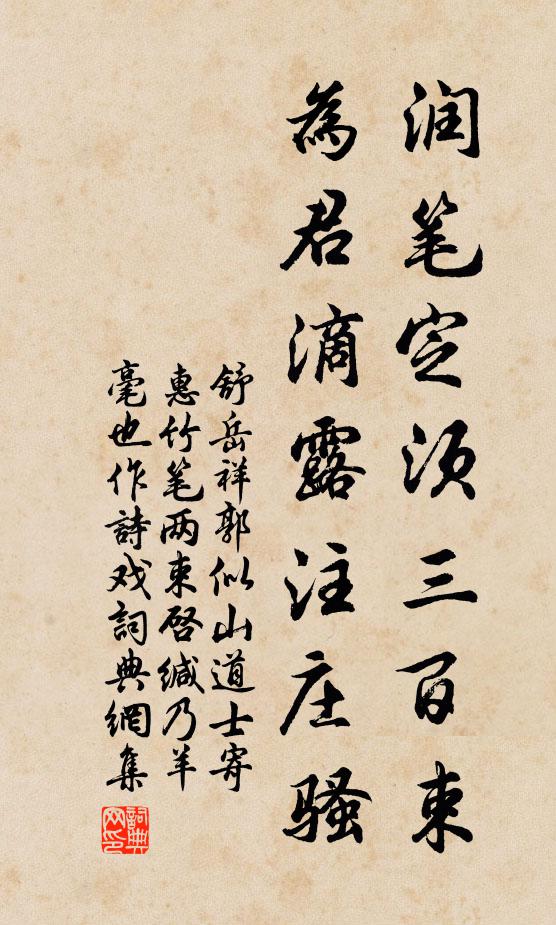 润笔定须三百束
為君滴露注庄骚
舒岳祥郭似山道士寄
惠竹笔两束启缄乃羊
毫也作詩戏詞典網集
詞典
网印